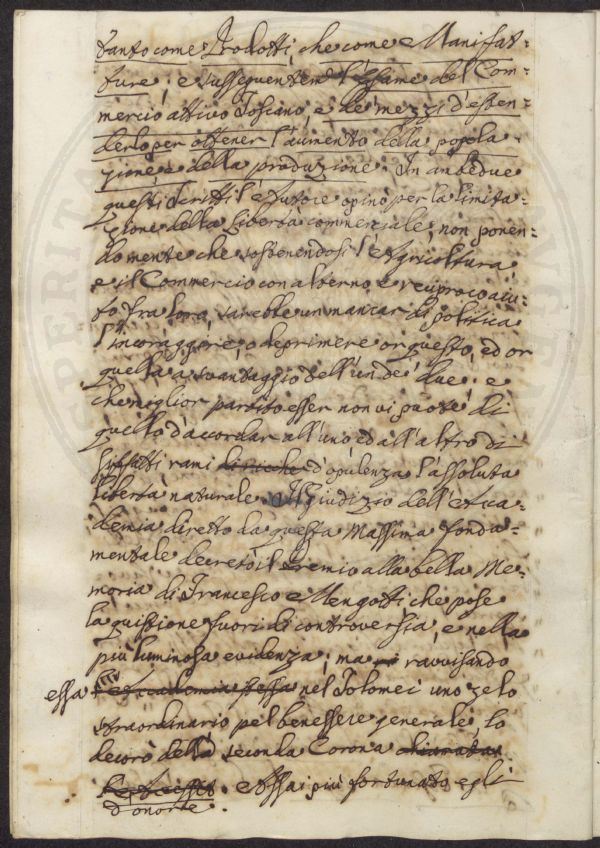 tanto come Prodotti, che come Manifat-
ture; e sussequentem.e l'Esame del Com-
mercio attivo Toscano, e de' mezzi d'esten-
derlo per ottener l'aumento della popola-
zione e della produzione. In ambedue
questi scritti l'Autore opinò per la limita-
zione della libertà commerciale, non ponen-
do mente che sostenendosi l'Agricoltura,
e il Commercio con alterno, e reciproco aiu-
to fra loro, sarebbe un mancar di politica
l'incoraggire, o deprimere or questo, ed or
quella a svantaggio dell'un de' due; e
che miglior partito esser non vi puote di
quello d'accordar all'uno ed all'altro di
siffatti rami d'opulenza l'assoluta
libertà naturale. Il Giudizio dell'Acca-
demia diretto da questa Massima fonda-
mentale decretò il Premio alla bella Me-
moria di Francesco Mengotti che pose
la quistione fuori di controversia, e nella
più luminosa evidenza; ma ravvisando
essa l'Accademia stessa nel Tolomei uno zelo
straordinario pel benessere generale, lo
decorò della seconda Corona chiamata
d'onore. Assai più fortunato egli